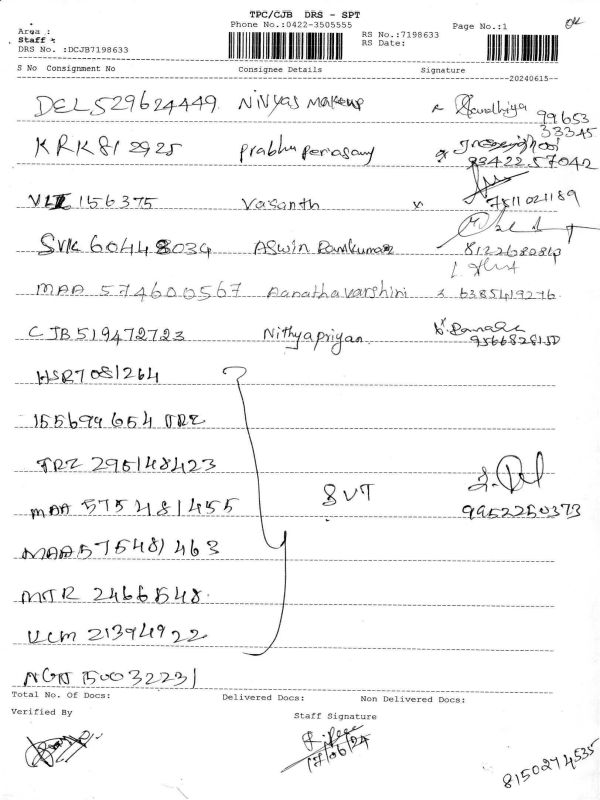 TPC/CJB DRS - SPT
Phone No.:0422-3505555
Page No.:1
OK
Area :
Staff :
RS No.:7198633
RS Date:
DRS No. :DCJB7198633
S No Consignment No Consignee Details Signature
20240615
DEL529624449 Nivyas Makeup Sandhiya 99653 33345
KRK812925 Prabhu Periasamy 93422 57042
156375 Vasanth 7511021189
SVK 604448034 Aswin Ramkumar 8122680840
MAA 574600567 Aanathavarshini 6385419276
CJB519472723 Nithyapriyan 9566828150
HSR7081264
155699654 TRZ
TRZ 295148423
MAA 575481455 SVT 9952250373
MAA575481463
MTR 2466548
UCM 21394922
NGN 150032231
Total No. Of Docs: Delivered Docs: Non Delivered Docs:
Verified By Staff Signature
17/06/24
8150274535